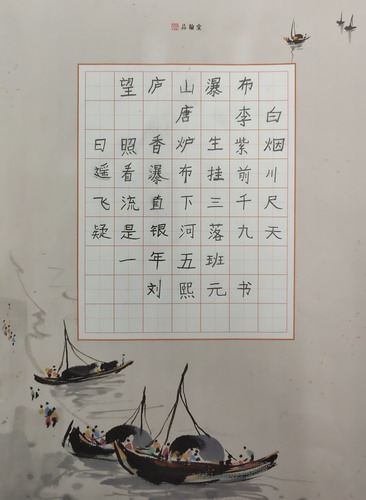 品翰堂
望庐山瀑布
唐 李白
日照香炉生紫烟
遥看瀑布挂前川
飞流直下三千尺
疑是银河落九天
一年五班
刘熙元书